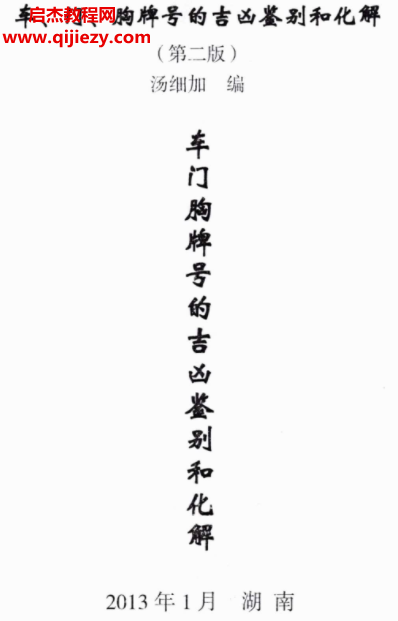 车、门、胸牌号的吉凶鉴别和化解
启杰教程网
www.qijiezy.com
（第二版）
汤细加 编
车门胸牌号的吉凶鉴别和化解
2013年1月 湖南